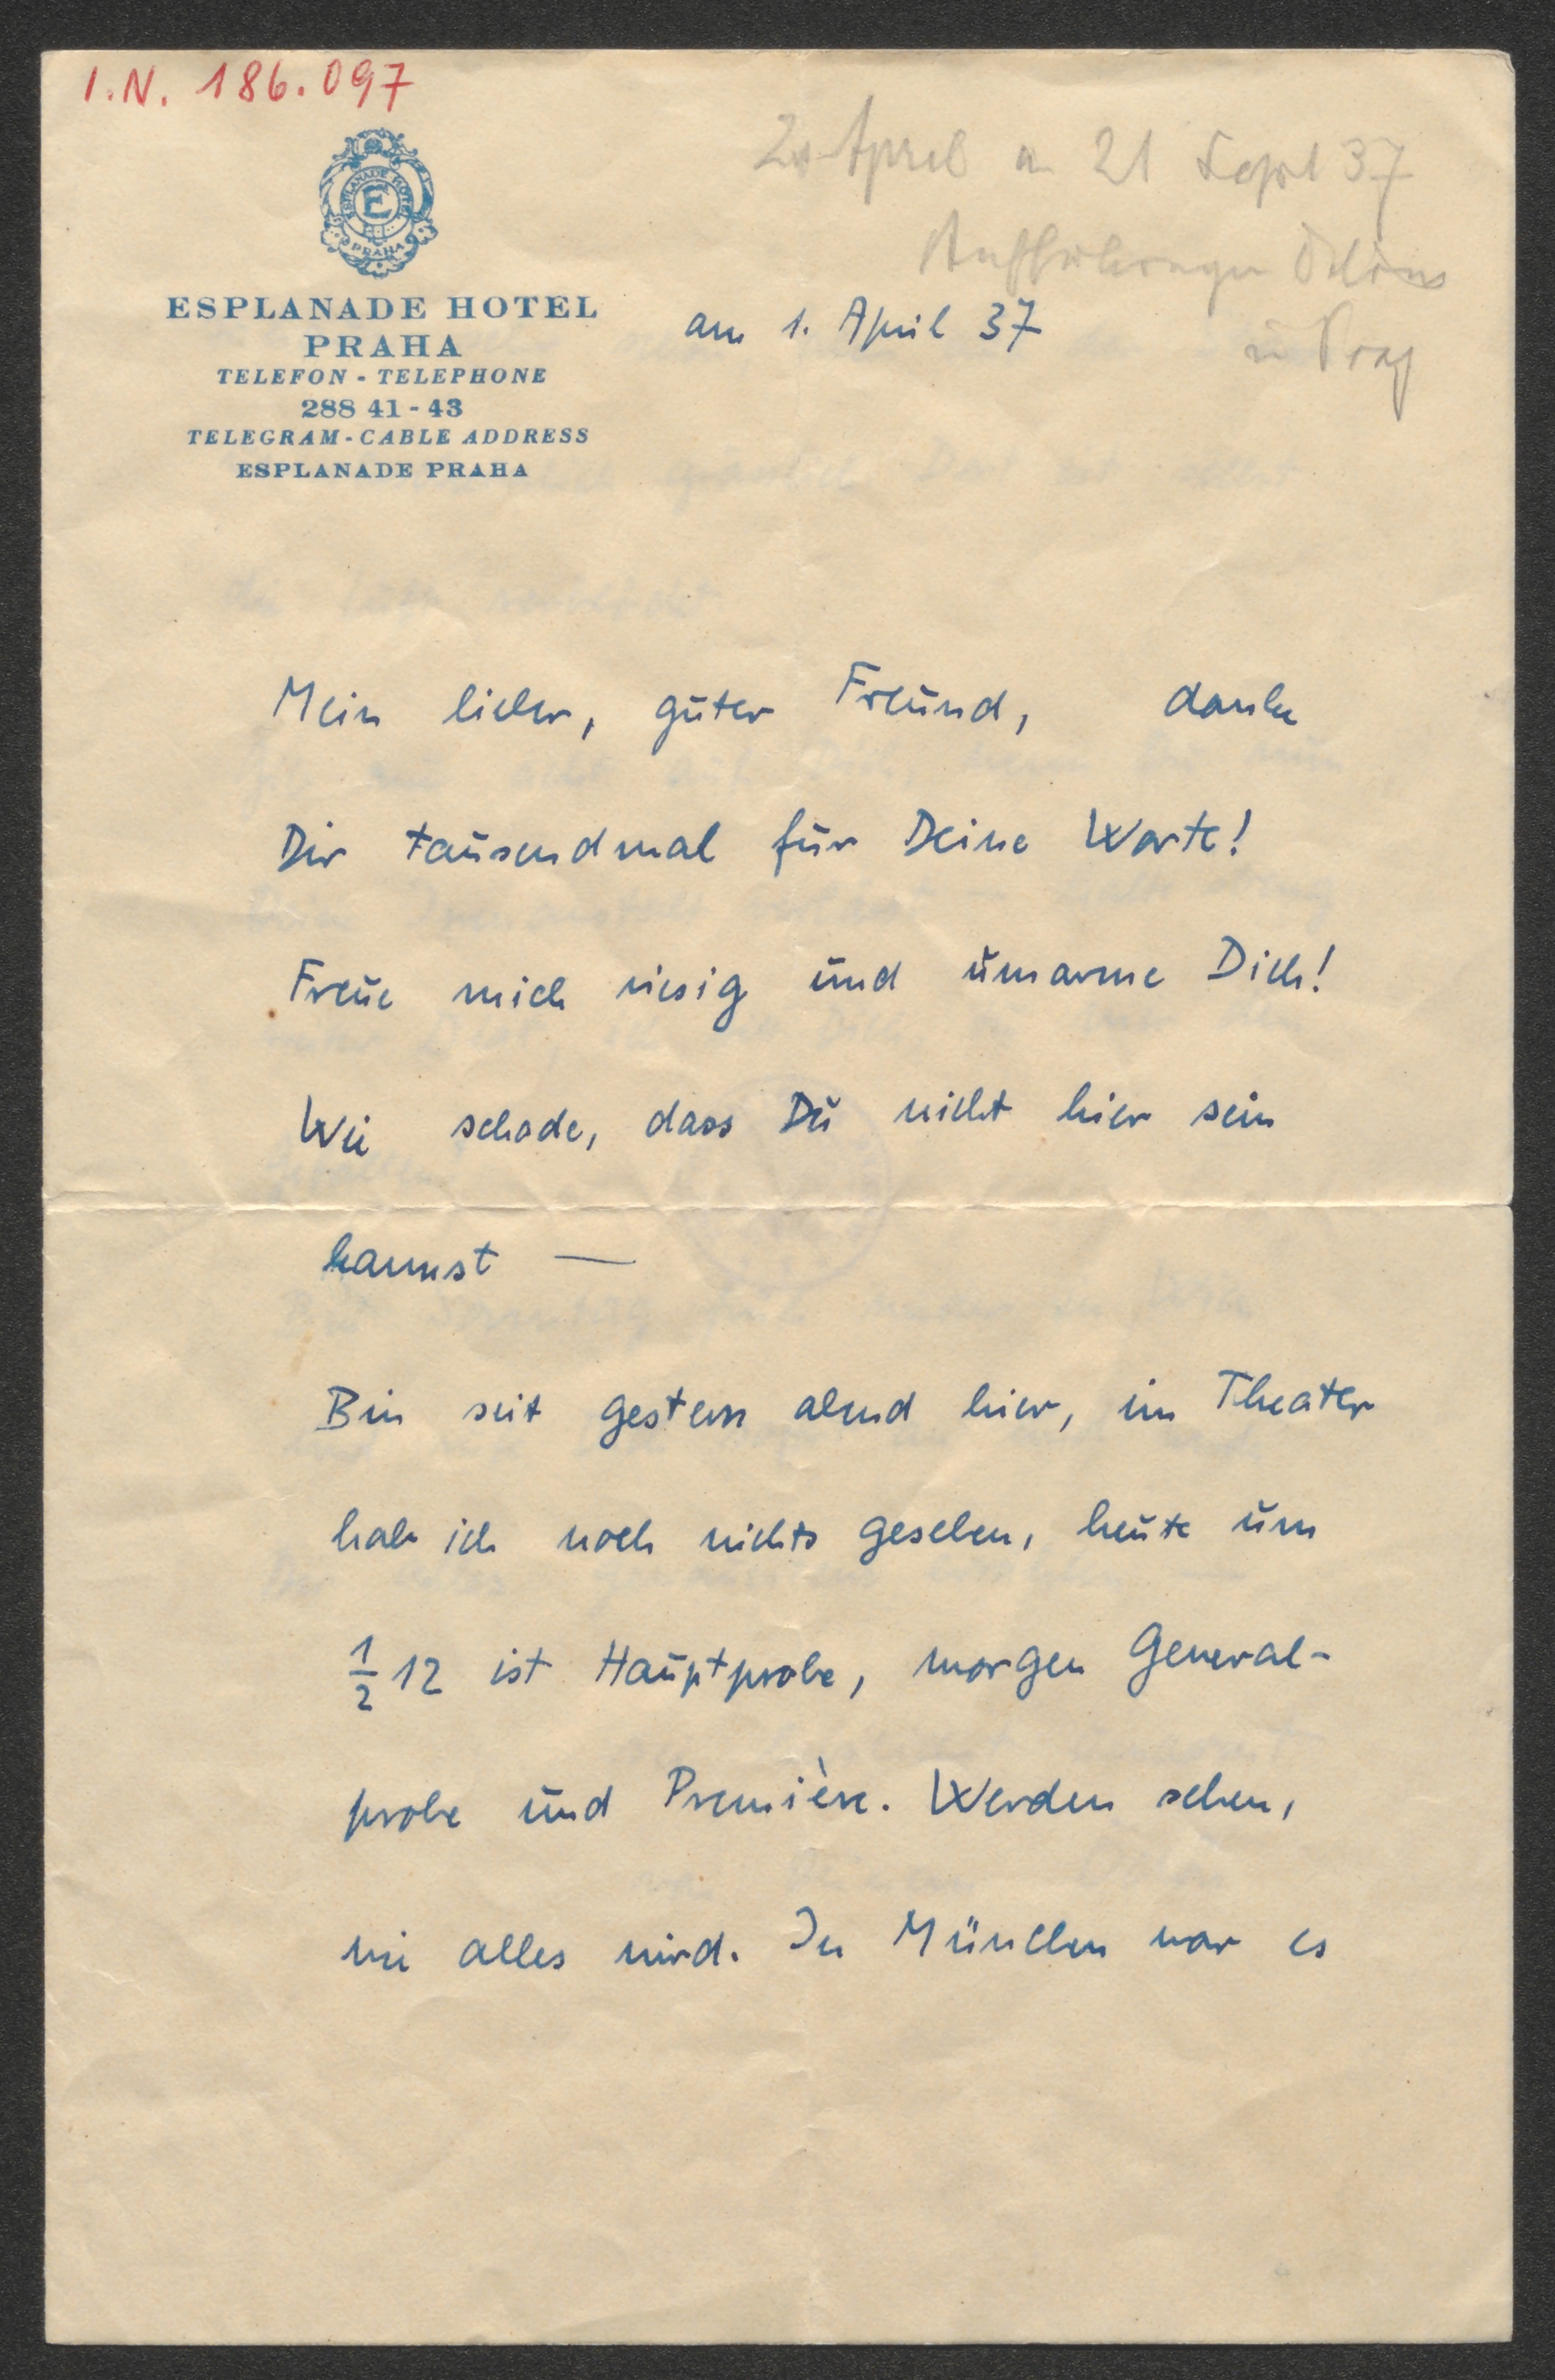 I.N. 186.097
2. April u 21 Sept 37
Aufführungen Ödöns
in Prag
ESPLANADE HOTEL
PRAHA
E
ESPLANADE HOTEL
PRAHA
TELEFON - TELEPHONE
288 41 - 43
TELEGRAM - CABLE ADDRESS
ESPLANADE PRAHA
am 1. April 37
Mein lieber, guter Freund, danke
Dir tausendmal für Deine Worte!
Freue mich riesig und umarme Dich!
Wie schade, dass Du nicht hier sein
kannst —
Bin seit gestern abend hier, im Theater
hab ich noch nichts gesehen, heute um
½ 12 ist Hauptprobe, morgen General-
probe und Première. Werden sehen,
wie alles wird. In München war es